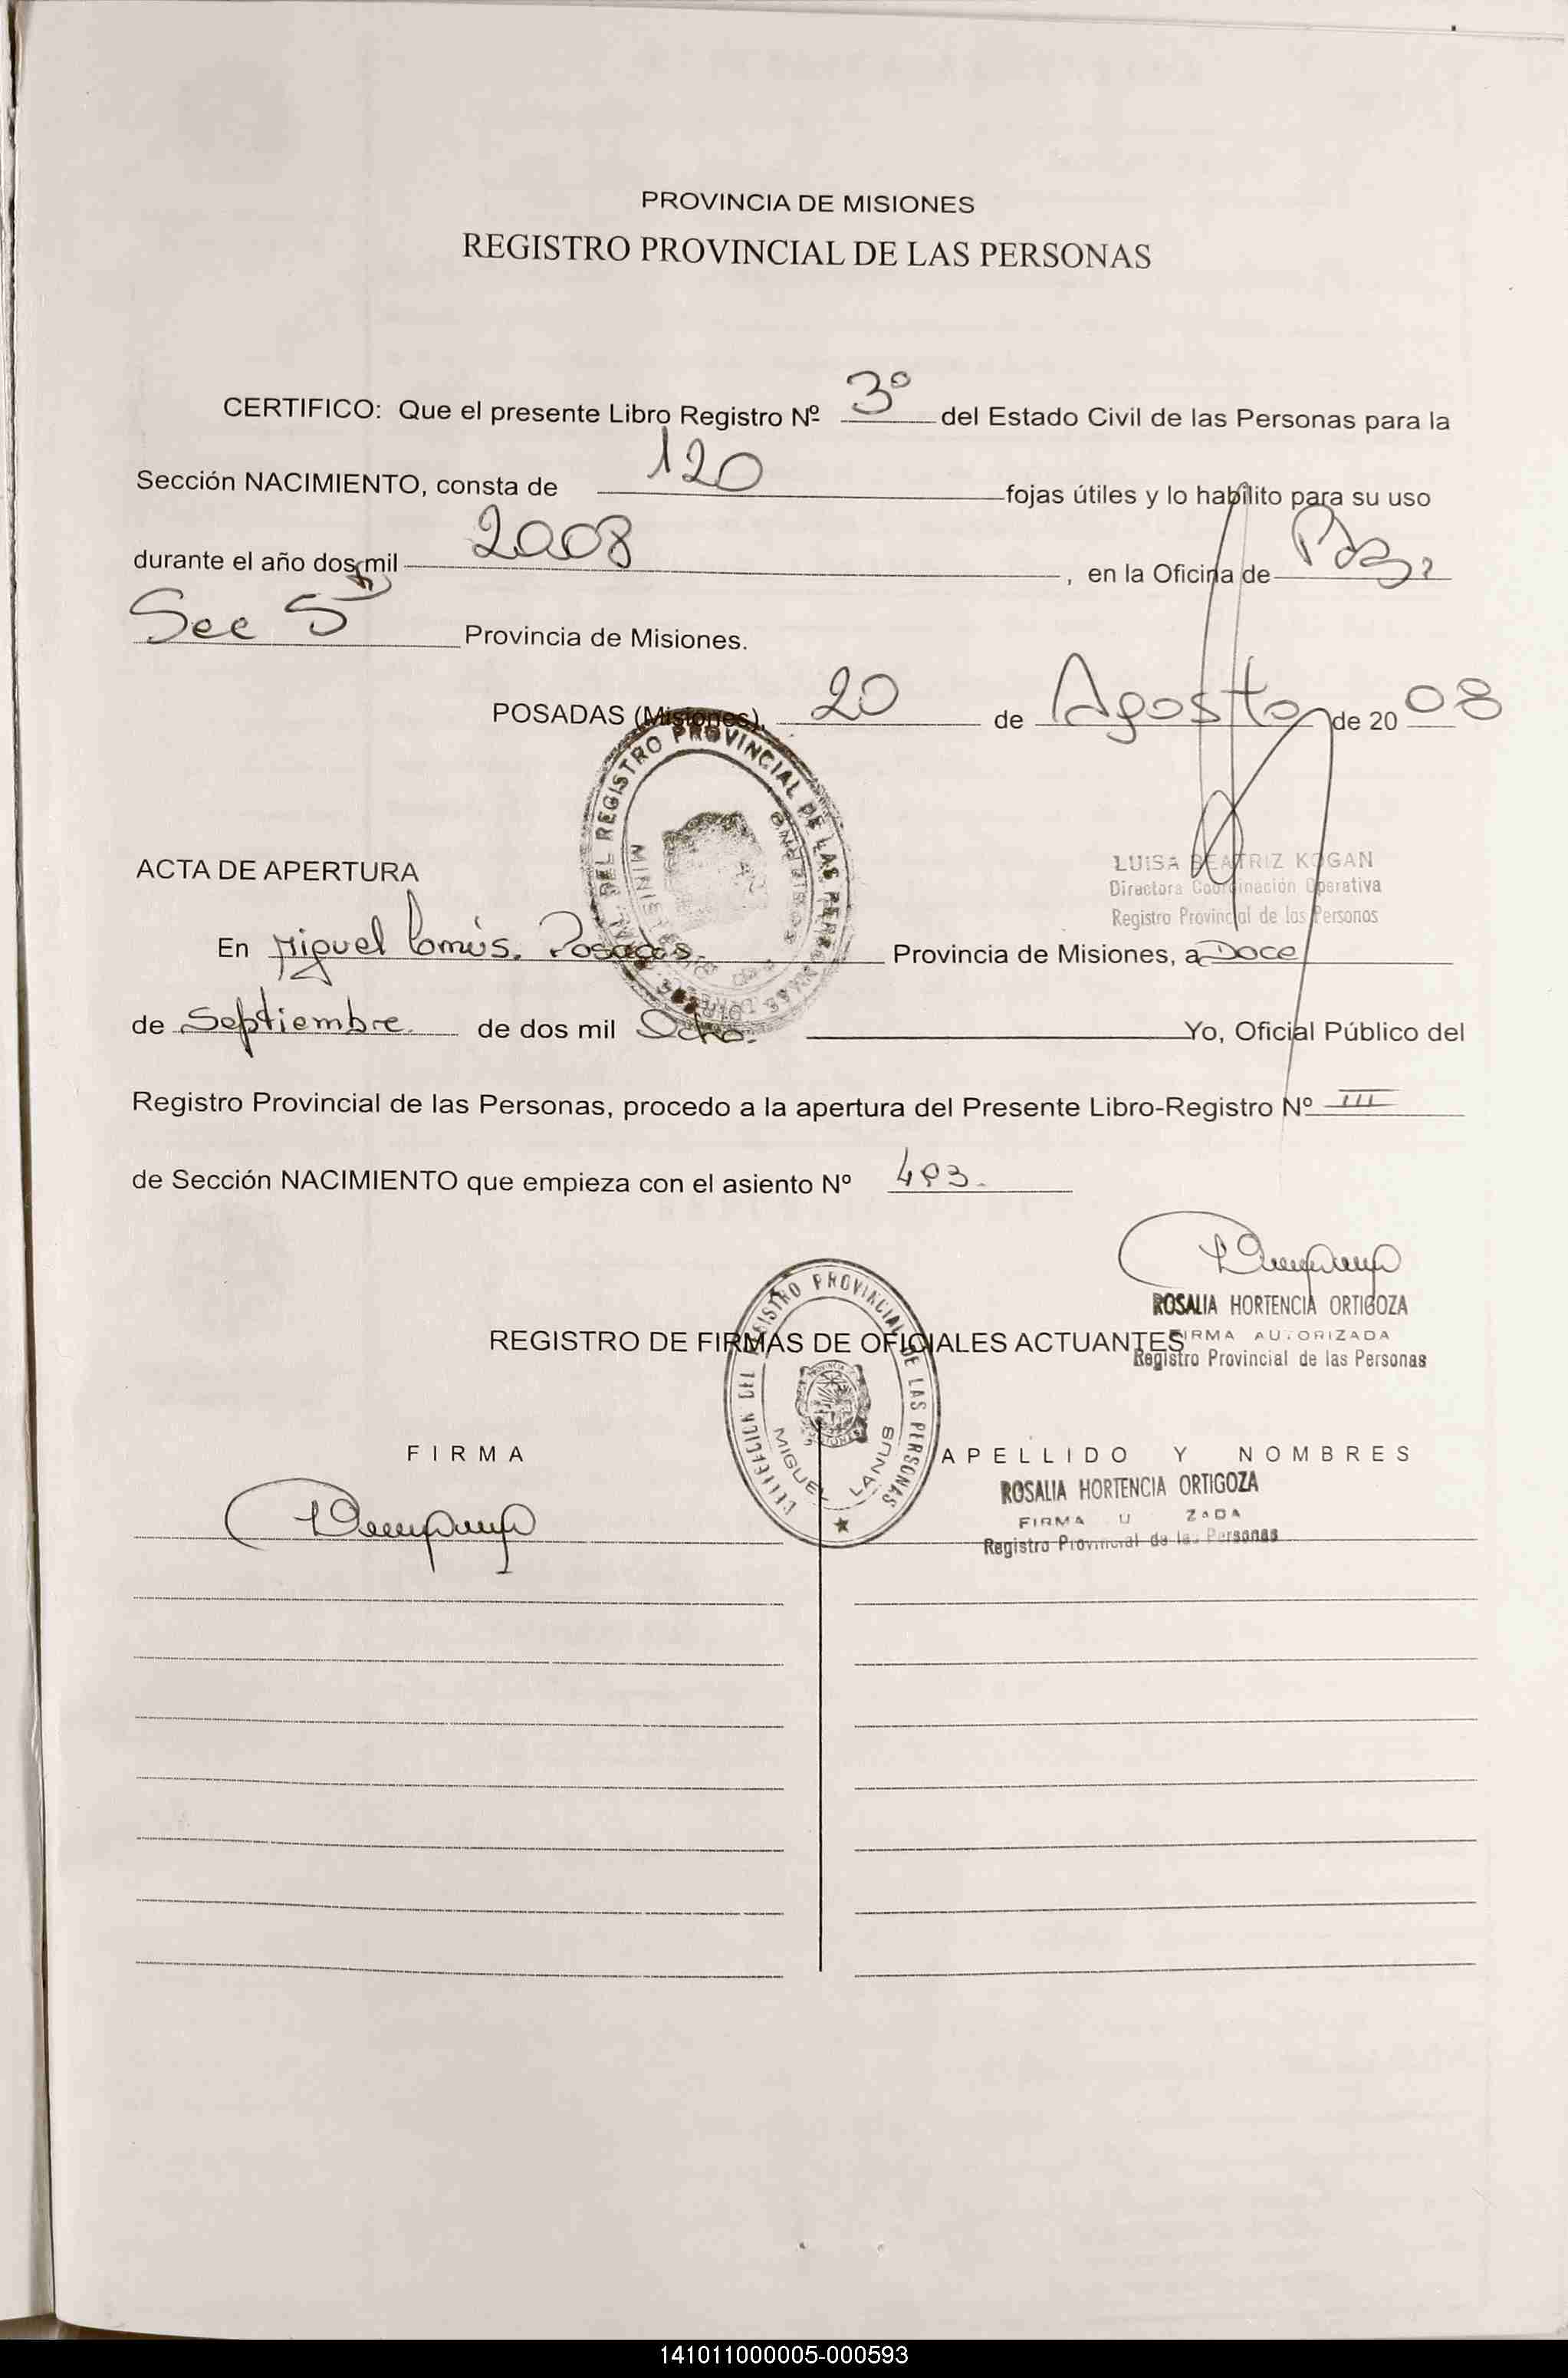 PROVINCIA DE MISIONES
REGISTRO PROVINCIAL DE LAS PERSONAS
CERTIFICO: Que el presente Libro Registro Nº 3º del Estado Civil de las Personas para la
Sección NACIMIENTO, consta de 120 fojas útiles y lo habilito para su uso
durante el año dos mil 2008, en la Oficina de
Sec 5 Provincia de Misiones.
POSADAS (Misiones), 20 de Agosto de 20 08
DEL REGISTRO PROVINCIAL DE LAS PERSONAS
LUISA BEATRIZ KOGAN
Directora Coordinación Operativa
Registro Provincial de las Personas
ACTA DE APERTURA
En Miguel Lanús. Posadas Provincia de Misiones, a Doce
de Septiembre. de dos mil Ocho. Yo, Oficial Público del
Registro Provincial de las Personas, procedo a la apertura del Presente Libro-Registro Nº III
de Sección NACIMIENTO que empieza con el asiento Nº 493.
ROSALIA HORTENCIA ORTIGOZA
FIRMA AUTORIZADA
Registro Provincial de las Personas
REGISTRO DE FIRMAS DE OFICIALES ACTUANTES
DELEGACION DEL REGISTRO PROVINCIAL DE LAS PERSONAS
MIGUEL LANUS
FIRMA APELLIDO Y NOMBRES
ROSALIA HORTENCIA ORTIGOZA
FIRMA U ZADA
Registro Provincial de las Personas
141011000005-000593